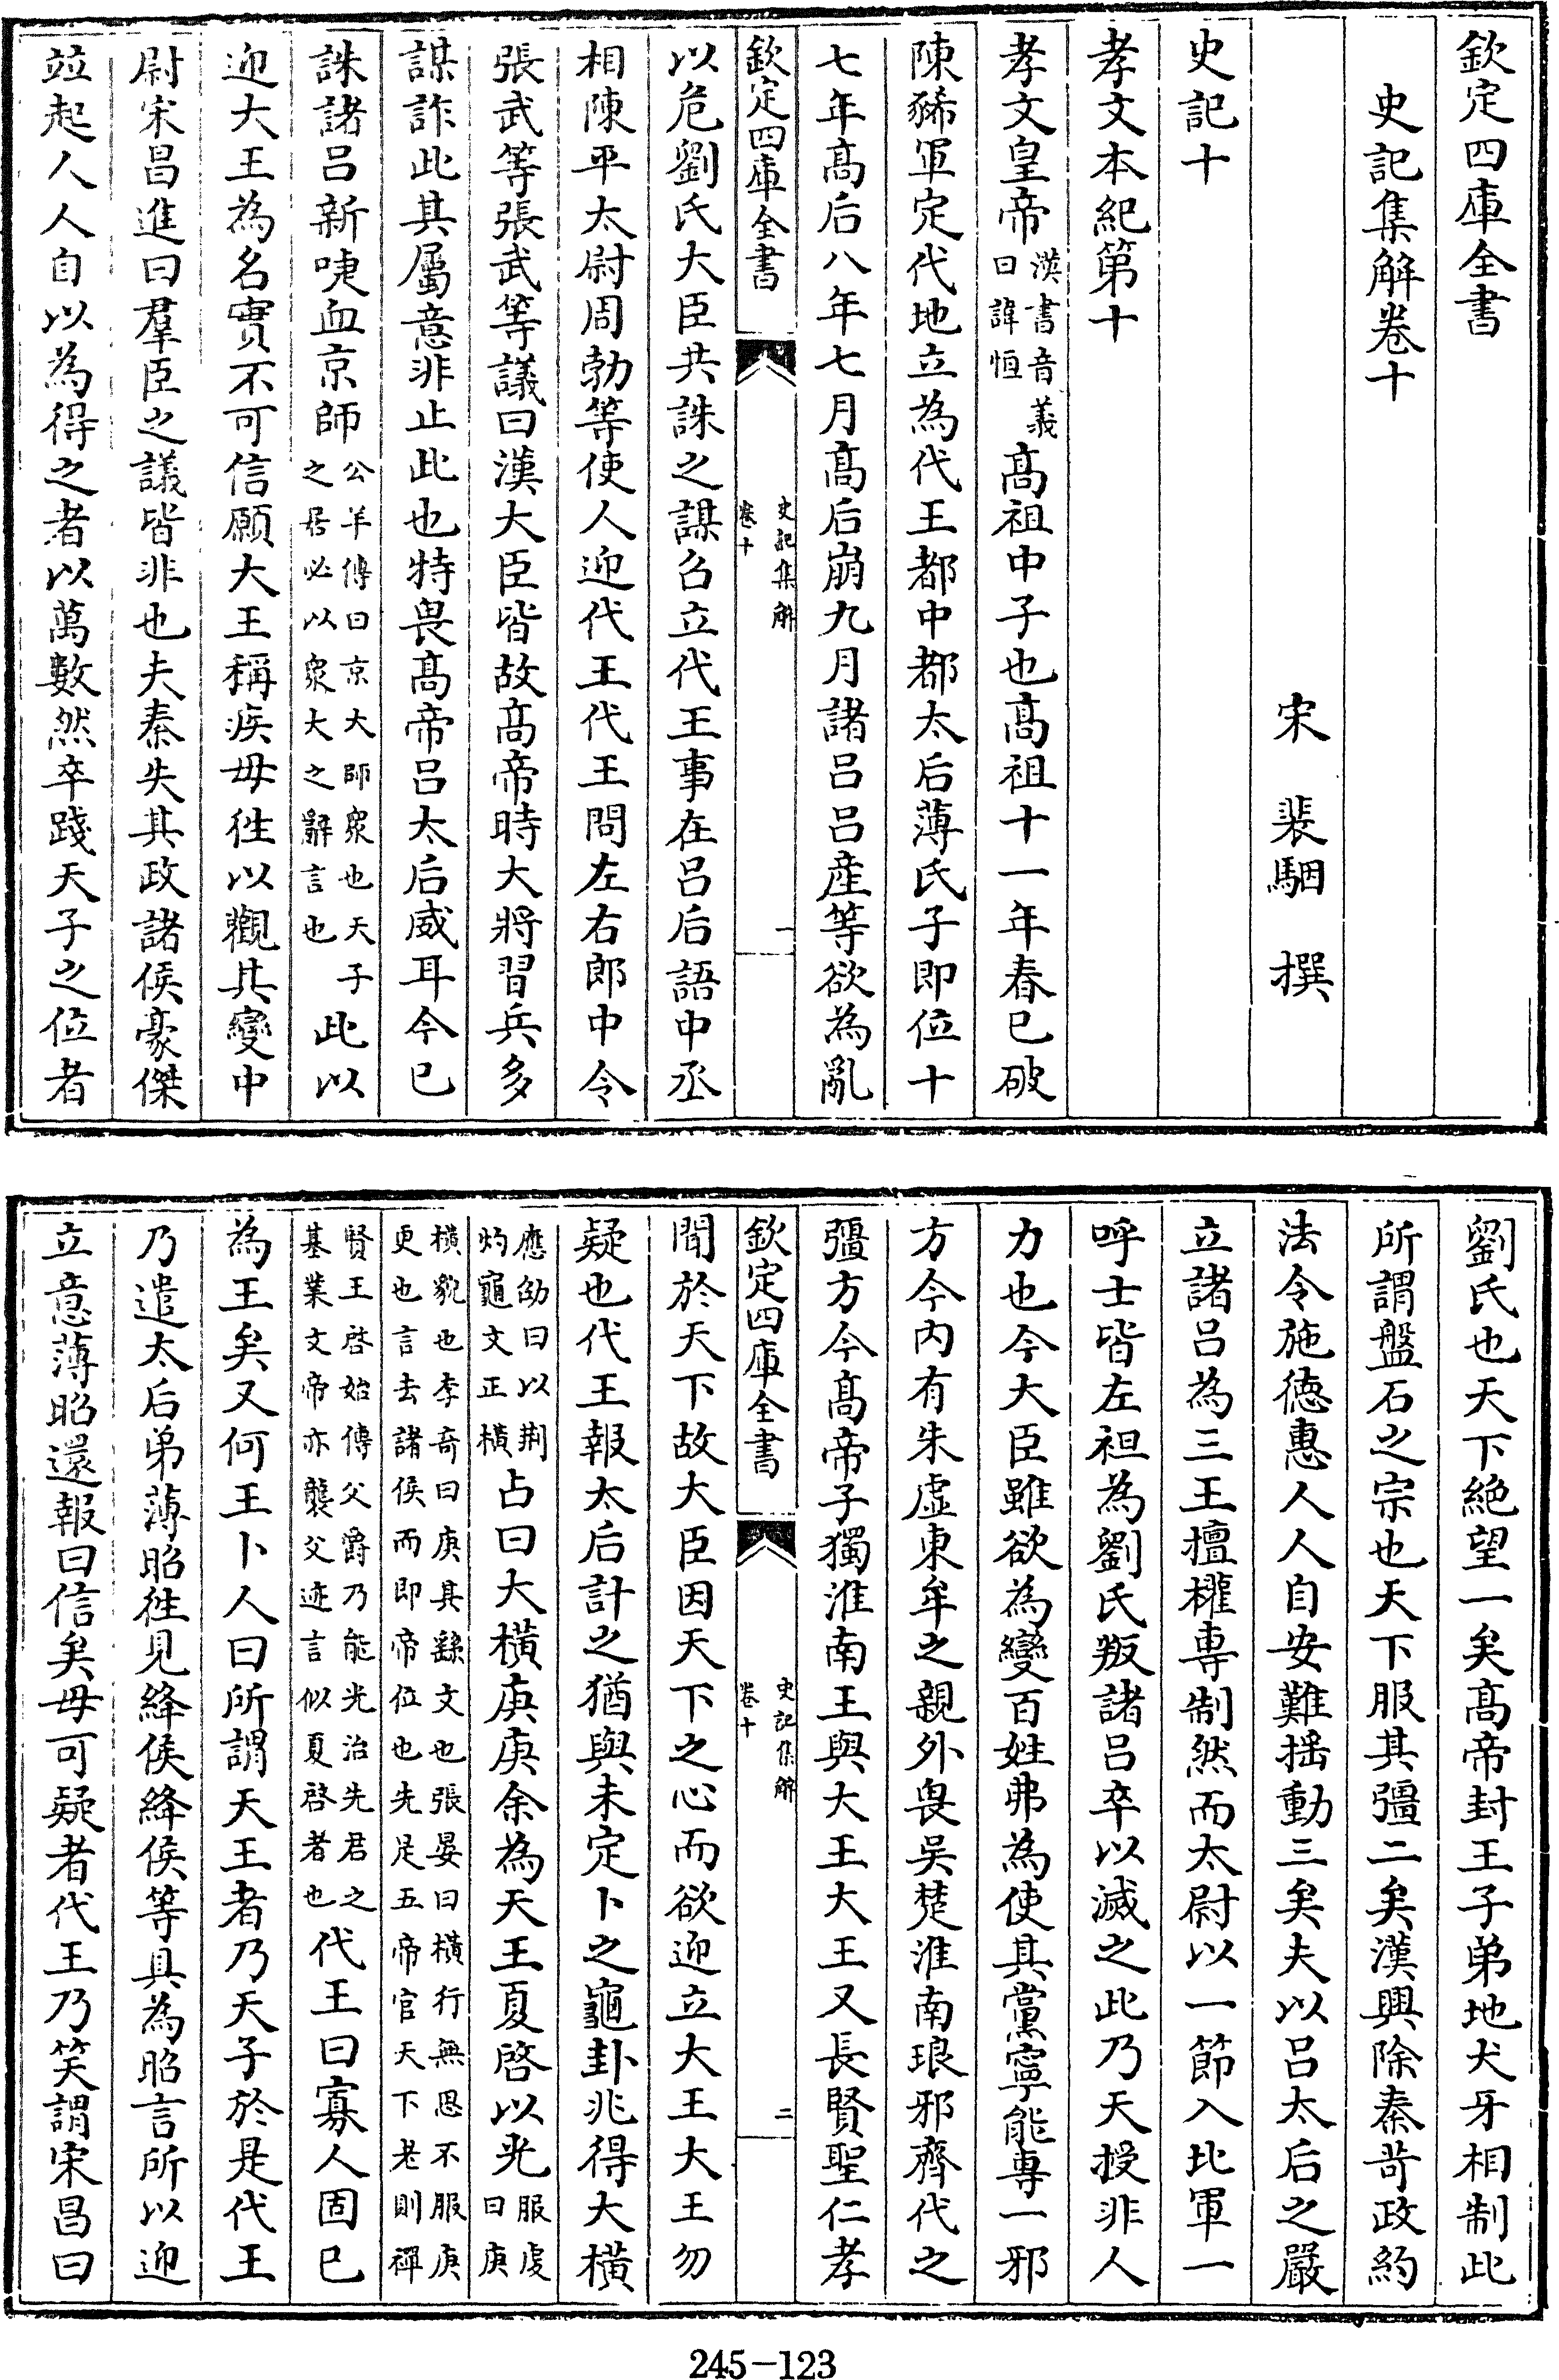 欽定四庫全書
史記集解卷十
宋　裴駰　撰
史記十
孝文本紀第十
孝文皇帝漢書音義曰諱恒高祖中子也高祖十一年春已破
陳豨軍定代地立為代王都中都太后薄氏子即位十
七年高后八年七月高后崩九月諸呂呂產等欲為亂
欽定四庫全書
史記集解
卷十
一
以危劉氏大臣共誅之謀召立代王事在呂后語中丞
相陳平太尉周勃等使人迎代王代王問左右郎中令
張武等張武等議曰漢大臣皆故高帝時大將習兵多
謀詐此其屬意非止此也特畏高帝呂太后威耳今已
誅諸呂新啑血京師公羊傳曰京大師衆也天子之居必以衆大之辭言也此以
迎大王為名實不可信願大王稱疾毋徃以觀其變中
尉宋昌進曰羣臣之議皆非也夫秦失其政諸侯豪傑
竝起人人自以為得之者以萬數然卒踐天子之位者
劉氏也天下絶望一矣高帝封王子弟地犬牙相制此
所謂盤石之宗也天下服其彊二矣漢興除秦苛政約
法令施徳惠人人自安難揺動三矣夫以呂太后之嚴
立諸呂為三王擅權専制然而太尉以一節入北軍一
呼士皆左袒為劉氏叛諸呂卒以滅之此乃天授非人
力也今大臣雖欲為變百姓弗為使其黨寧能専一邪
方今内有朱虛東牟之親外畏吳楚淮南琅邪齊代之
彊方今高帝子獨淮南王與大王大王又長賢聖仁孝
欽定四庫全書
史記集解
卷十
二
聞於天下故大臣因天下之心而欲迎立大王大王勿
疑也代王報太后計之猶與未定卜之龜卦兆得大橫
應劭曰以荆灼龜文正橫占曰大橫庚庚余為天王夏啓以光服虔曰庚
橫貌也李奇曰庚其繇文也張晏曰橫行無思不服庚更也言去諸侯而即帝位也先是五帝官天下老則禪
賢王啓始傳父爵乃能光治先君之基業文帝亦襲父迹言似夏啓者也代王曰寡人固已
為王矣又何王卜人曰所謂天王者乃天子於是代王
乃遣太后弟薄昭徃見絳侯絳侯等具為昭言所以迎
立意薄昭還報曰信矣毋可疑者代王乃笑謂宋昌曰
245-123